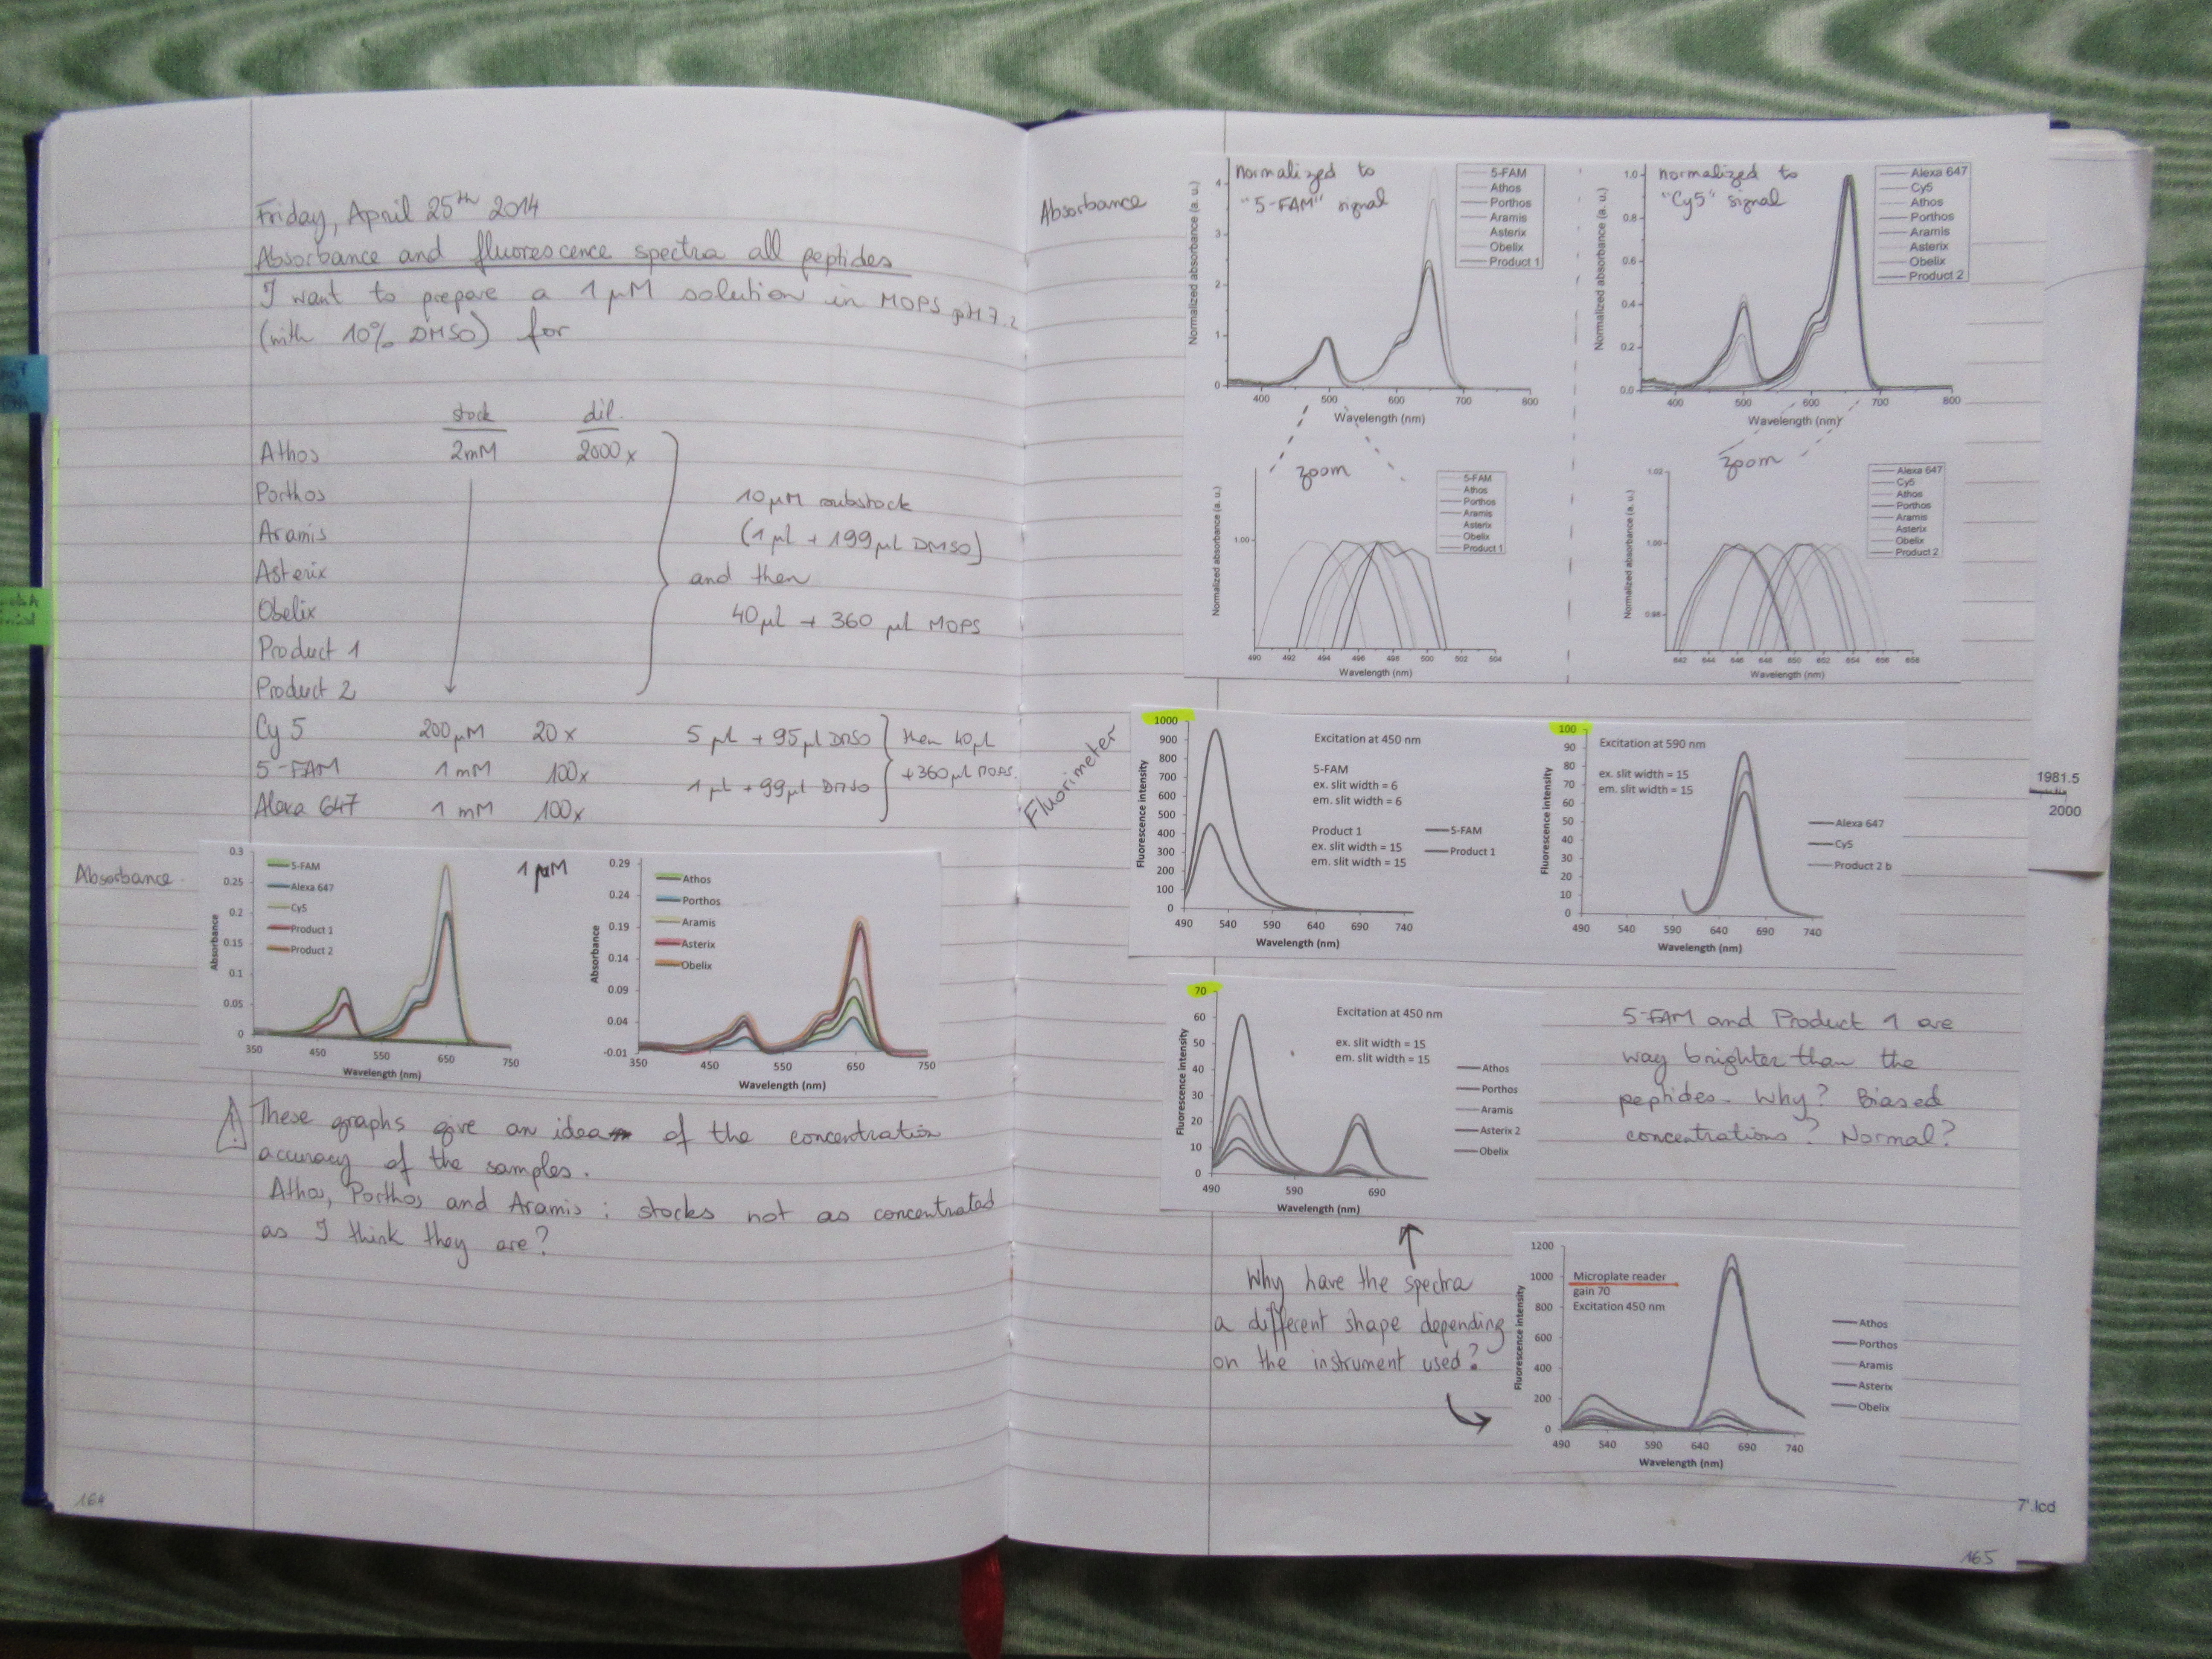 Friday, April 25th 2014
Absorbance and fluorescence spectra all peptides
I want to prepare a 1 µM solution in MOPS pH 7.2
(with 10% DMSO) for
stock dil.
Athos 2mM 2000x
Porthos
Aramis
Asterix
Obelix
Product 1
Product 2
10 µM substock
(1 µl + 199 µl DMSO)
and then
40 µl + 360 µl MOPS
Cy 5 200 µM 20x 5 µl + 95 µl DMSO
5-FAM 1 mM 100x 1 µl + 99 µl DMSO
Alexa 647 1 mM 100x
then 40 µl
+ 360 µl MOPS.
Absorbance
0.3
0.25
0.2
0.15
0.1
0.05
0
Absorbance
5-FAM
Alexa 647
Cy5
Product 1
Product 2
350 450 550 650 750
Wavelength (nm)
1 µM
0.29
0.24
0.19
0.14
0.09
0.04
-0.01
Absorbance
Athos
Porthos
Aramis
Asterix
Obelix
350 450 550 650 750
Wavelength (nm)
These graphs give an idea of the concentration
accuracy of the samples.
Athos, Porthos and Aramis : stocks not as concentrated
as I think they are?
164
Absorbance
normalized to
"5-FAM" signal
5-FAM
Athos
Porthos
Aramis
Asterix
Obelix
Product 1
Normalized absorbance (a. u.)
4
3
2
1
0
400 500 600 700 800
Wavelength (nm)
normalized to
"Cy5" signal
Alexa 647
Cy5
Athos
Porthos
Aramis
Asterix
Obelix
Product 2
Normalized absorbance (a. u.)
1.0
0.8
0.6
0.4
0.2
0.0
400 500 600 700 800
Wavelength (nm)
zoom
5-FAM
Athos
Porthos
Aramis
Asterix
Obelix
Product 1
Normalized absorbance (a. u.)
1.00
490 492 494 496 498 500 502 504
Wavelength (nm)
zoom
Alexa 647
Cy5
Athos
Porthos
Aramis
Asterix
Obelix
Product 2
Normalized absorbance (a. u.)
1.02
1.00
0.98
642 644 646 648 650 652 654 656 658
Wavelength (nm)
Fluorimeter
1000
900
800
700
600
500
400
300
200
100
0
Fluorescence intensity
Excitation at 450 nm
5-FAM
ex. slit width = 6
em. slit width = 6
Product 1
ex. slit width = 15
em. slit width = 15
5-FAM
Product 1
490 540 590 640 690 740
Wavelength (nm)
100
90
80
70
60
50
40
30
20
10
0
Fluorescence intensity
Excitation at 590 nm
ex. slit width = 15
em. slit width = 15
Alexa 647
Cy5
Product 2 b
490 540 590 640 690 740
Wavelength (nm)
1981.5
2000
70
60
50
40
30
20
10
0
Fluorescence intensity
Excitation at 450 nm
ex. slit width = 15
em. slit width = 15
Athos
Porthos
Aramis
Asterix 2
Obelix
490 590 690
Wavelength (nm)
5-FAM and Product 1 are
way brighter than the
peptides. Why? Biased
concentrations? Normal?
Why have the spectra
a different shape depending
on the instrument used?
1200
1000
800
600
400
200
0
Fluorescence intensity
Microplate reader
gain 70
Excitation 450 nm
Athos
Porthos
Aramis
Asterix
Obelix
490 540 590 640 690 740
Wavelength (nm)
7'.lcd
165